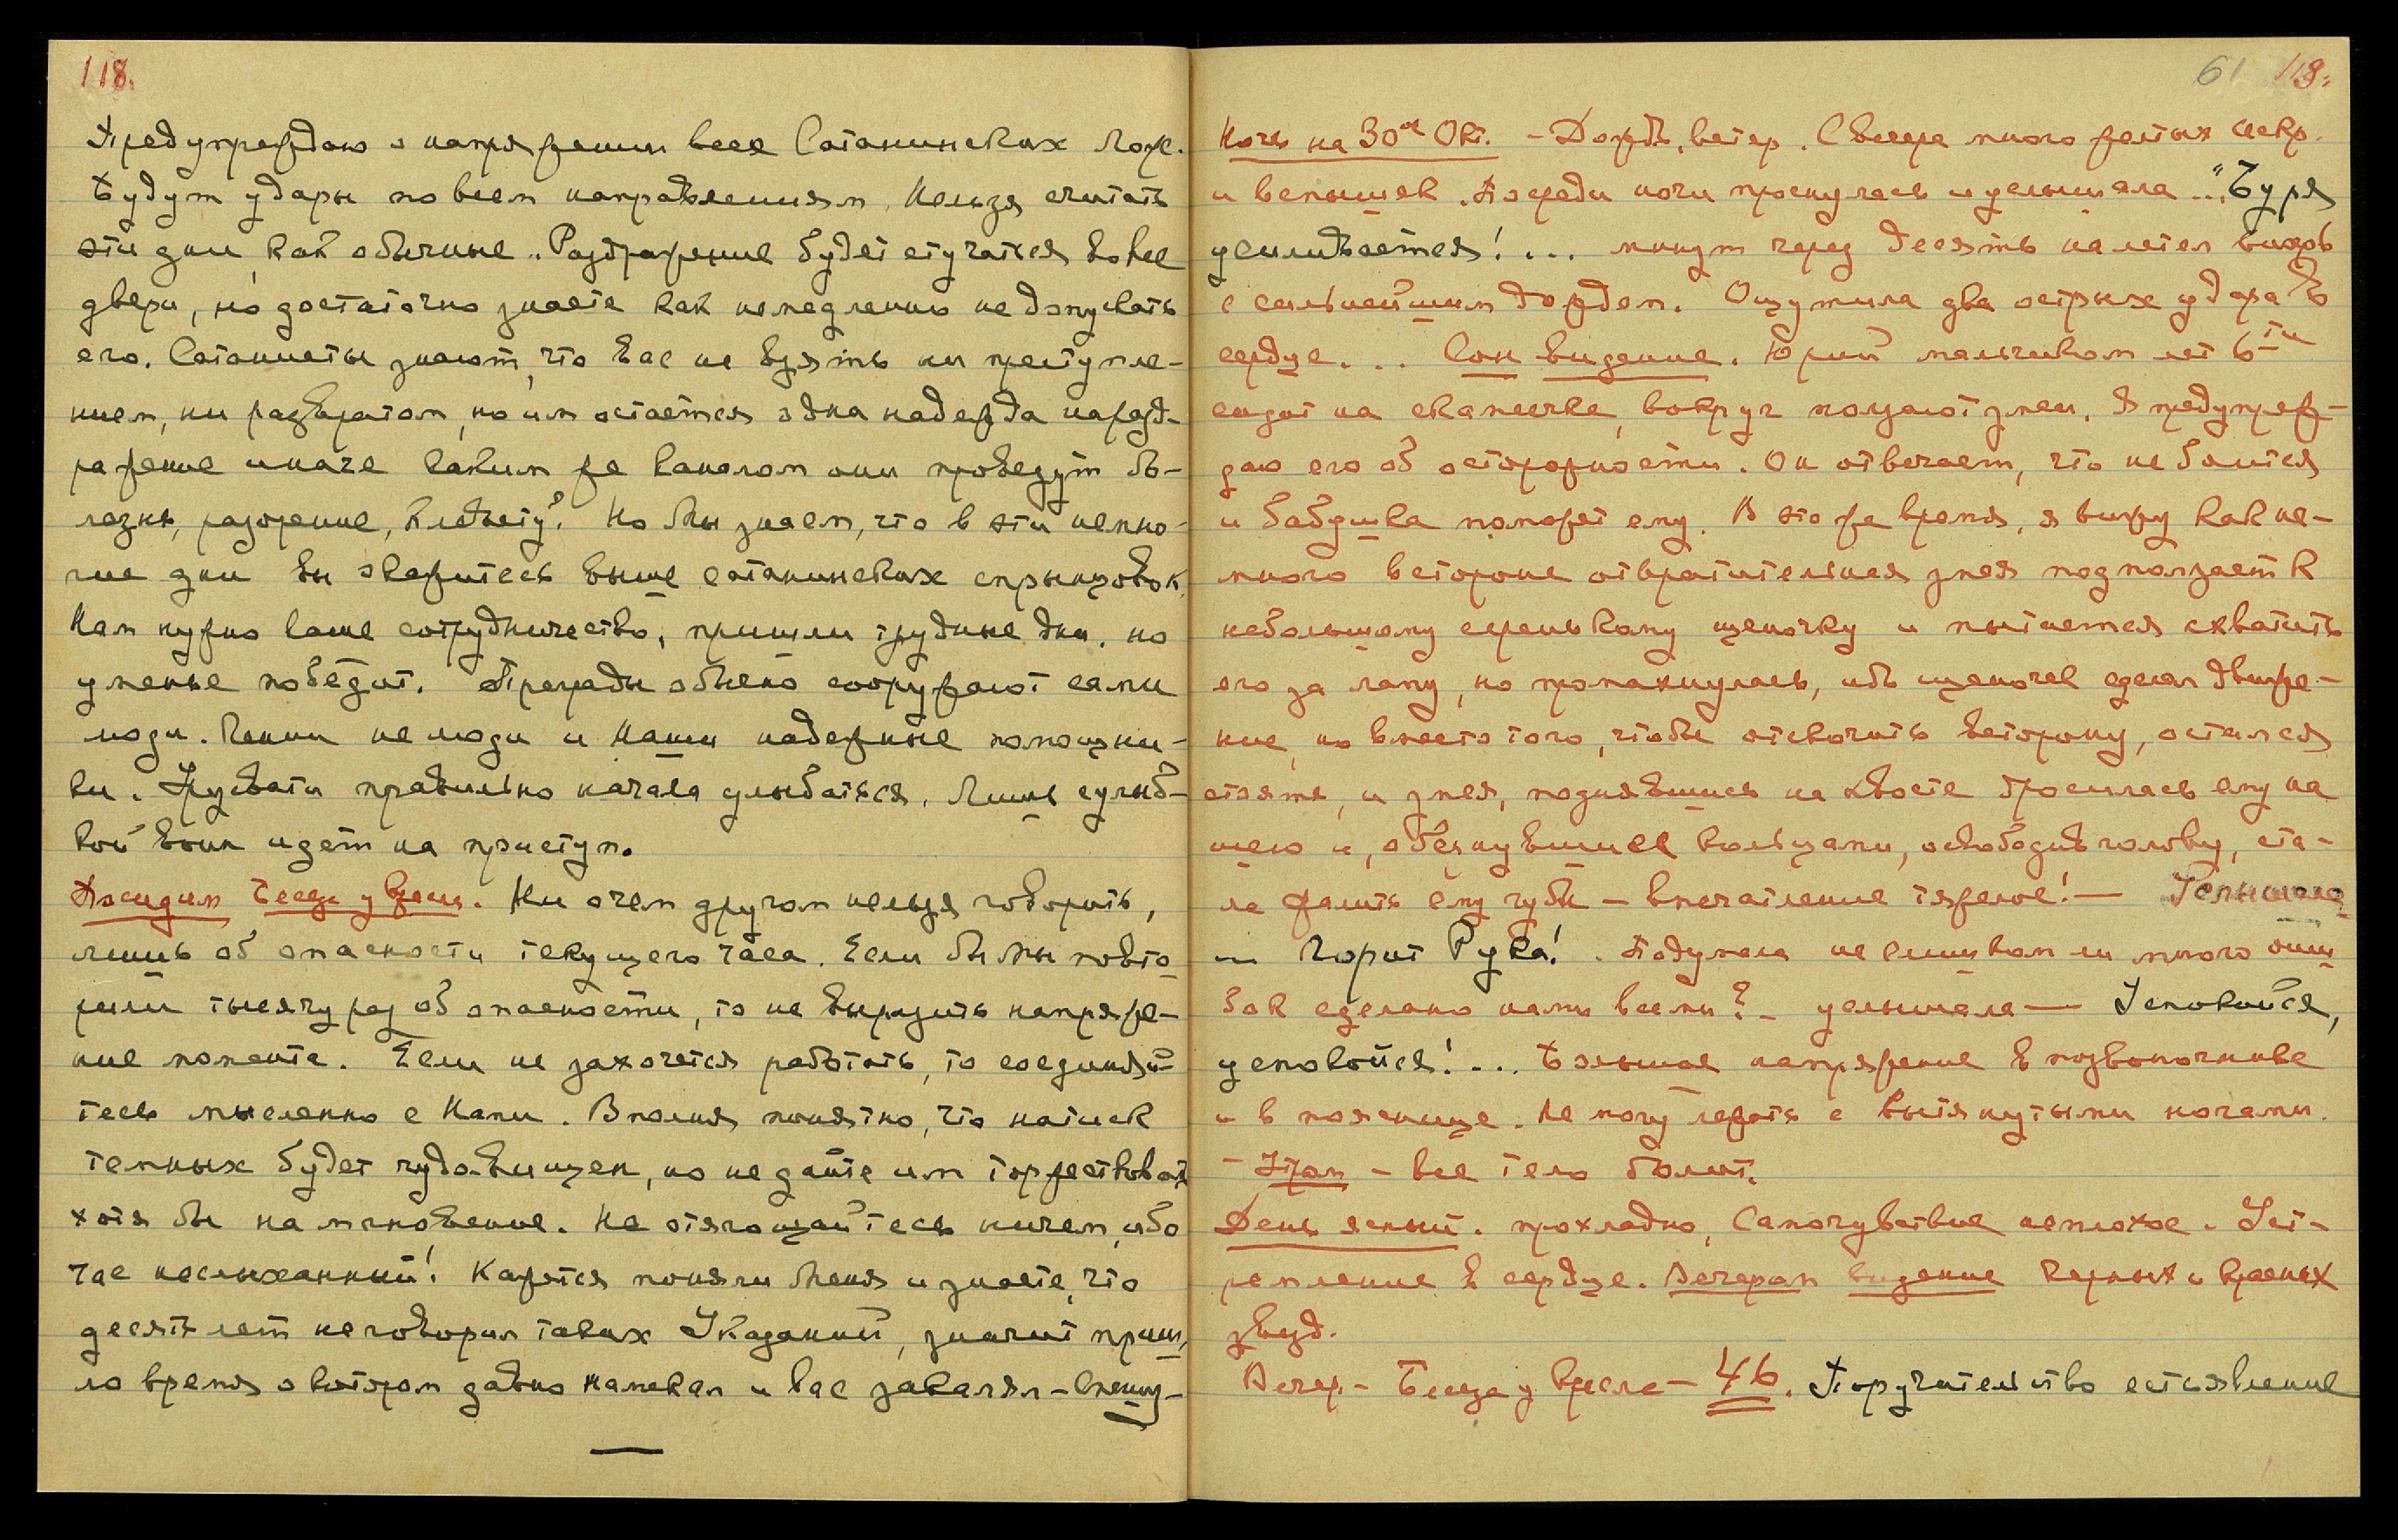 118.
Предупреждаю о напряжении всех Сатанинских Лож.
Будут удары по всем направлениям. Нельзя считать
эти дни как обычные. Раздражение будет стучаться во все
двери, но достаточно знаете как немедленно не допускать
его. Сатанисты знают, что вас не взять ни преступле-
нием, ни развратом, но им остается одна надежда на разд-
ражение иначе каким же каналом они проведут бо-
лезнь, разорение, клевету? Но Мы знаем, что в эти немно-
гие дни вы окажитесь выше сатанинских спрынцовок.
Нам нужно ваше сотрудничество, пришли трудные дни, но
уменье победит. Преграды обычно сооружают сами
люди. Гении не люди и Наши надежные помощни-
ки. правильно начала улыбаться. Лишь с улыб-
кой воин идет на приступ.
Посидим Беседа у кресла. Ни о чем другом нельзя говорить,
лишь об опасности текущего часа. Если бы Мы повто-
рили тысячу раз об опасности, то не выразить напряже-
ние момента. Если не захочется работать, то соединяй-
тесь мысленно с Нами. Вполне понятно, что натиск
темных будет чудовищен, но не дайте им торжествовать
хотя бы на мгновение. Не отягощайтесь ничем, ибо
час неслыханный! Кажется поняли Меня и знаете, что
десять лет не говорил таких Указаний, значит приш-
ло время о котором давно намекал и вас закалял – спешу –
61 118.
Ночь на 30ое Окт. – Дождь, ветер. С вечера много желтых искр.
и вспышек. Посреди ночи проснулась и услышала ..."Буря
усиливается! ... минут через десять налетел вихрь
с сильнейшим дождем. Ощутила два острых удара в
сердце. .. Сон видение. Юрий мальчиком лет 6ти
сидит на скамеечке, вокруг ползают змеи. Я предупреж-
даю его об осторожности. Он отвечает, что не боится
и Бабушка поможет ему. В это же время, я вижу как не-
много в стороне отвратительная змея подползает к
небольшому серенькому щеночку и пытается схватить
его за лапу, но промахнулась, ибо щеночек сделал движе-
ние, но вместо того, чтобы отскочить в сторону, остался
стоять, и змея, поднявшись на хвосте бросилась ему на
шею и, обернувшись кольцами, освободив голову, ста-
ла жалить ему губы – впечатление тяжелое! — Услышала
... Горит Рука! . Подумала не слишком ли много оши-
бок сделано нами всеми? – услышала — Успокойся,
успокойся! ... Большое напряжение в позвоночнике
и в пояснице. Не могу лежать с вытянутыми ногами.
– Утром – все тело болит.
День ясный. прохладно, Самочувствие неплохое. Уст-
ремление в сердце. Вечером видение черных и красных
звезд.
Вечер – Беседа у кресла – 46. Поручительство есть явление